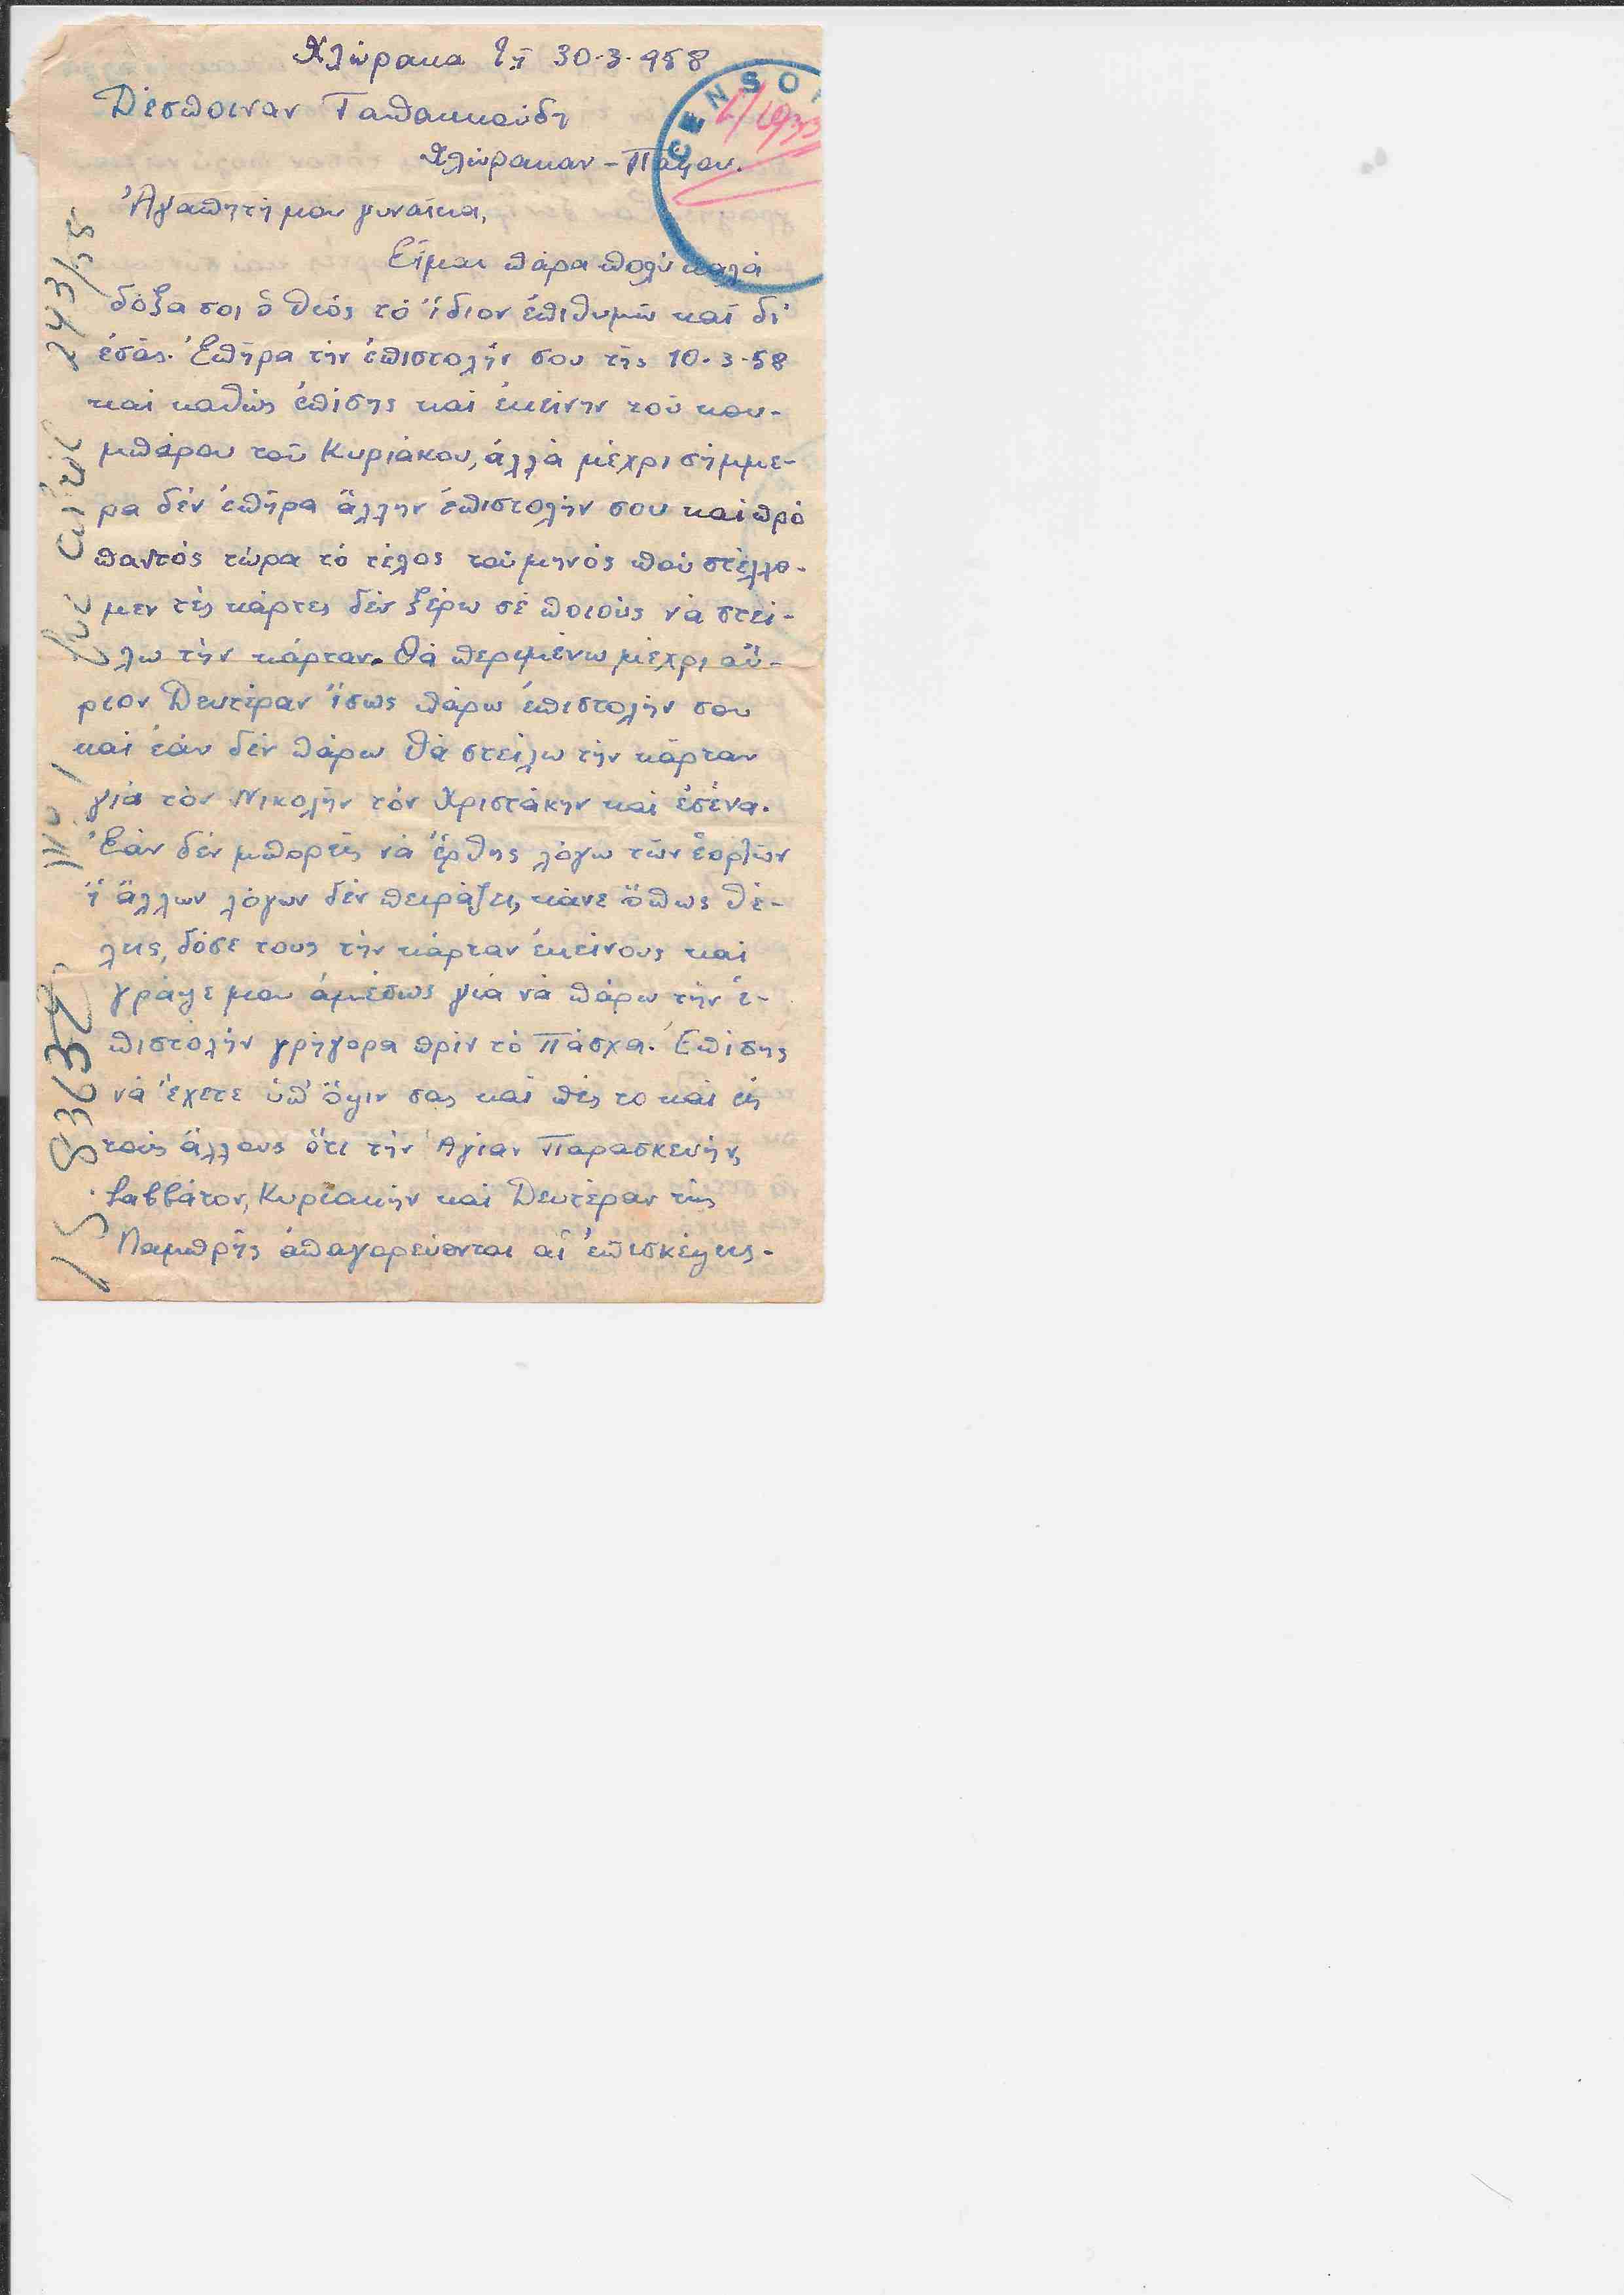 Χλώρακα τῇ 30-3-958
Δέσποιναν Ταπακκούδη
Χλώρακαν - Πάφου.
CENSO
Ἀγαπητή μου γυναῖκα,
Εἶμαι πάρα πολύ καλά
δόξα σοι ὁ θεός τό ἴδιον ἐπιθυμῶ καί δι'
ἐσάς. Ἐπῆρα τήν ἐπιστολήν σου τῆς 10-3-58
καί καθώς ἐπίσης καί ἐκείνην τοῦ κου-
μπάρου τοῦ Κυριάκου, ἀλλά μέχρι σήμμε-
ρα δέν ἐπῆρα ἄλλην ἐπιστολήν σου καί πρό
παντός τώρα τό τέλος τοῦ μηνός πού στέλλο-
μεν τές κάρτες δέν ξέρω σέ ποιούς νά στεί-
λω τήν κάρταν. Θά περιμένω μέχρι αὔ-
ριον Δευτέραν ἴσως πάρω ἐπιστολήν σου
καί ἐάν δέν πάρω θά στείλω τήν κάρταν
γιά τόν Νικολήν τόν Χριστάκην καί ἐσένα.
Ἐάν δέν μπορεῖς νά ἔρθης λόγω τῶν ἑορτῶν
ἤ ἄλλων λόγων δέν πειράζει, κάνε ὅπως θέ-
λεις, δόσε τους τήν κάρταν ἐκείνους καί
γράψε μου ἀμέσως γιά νά πάρω τήν ἐ-
πιστολήν γρήγορα πρίν τό Πάσχα. Ἐπίσης
νά ἔχετε ὑπ' ὄψιν σας καί πές το καί εἰς
τούς ἄλλους ὅτι τήν Ἁγίαν Παρασκευήν,
Σαββάτον, Κυριακήν καί Δευτέραν τῆς
Λαμπρῆς ἀπαγορεύονται αἱ ἐπισκέψεις.